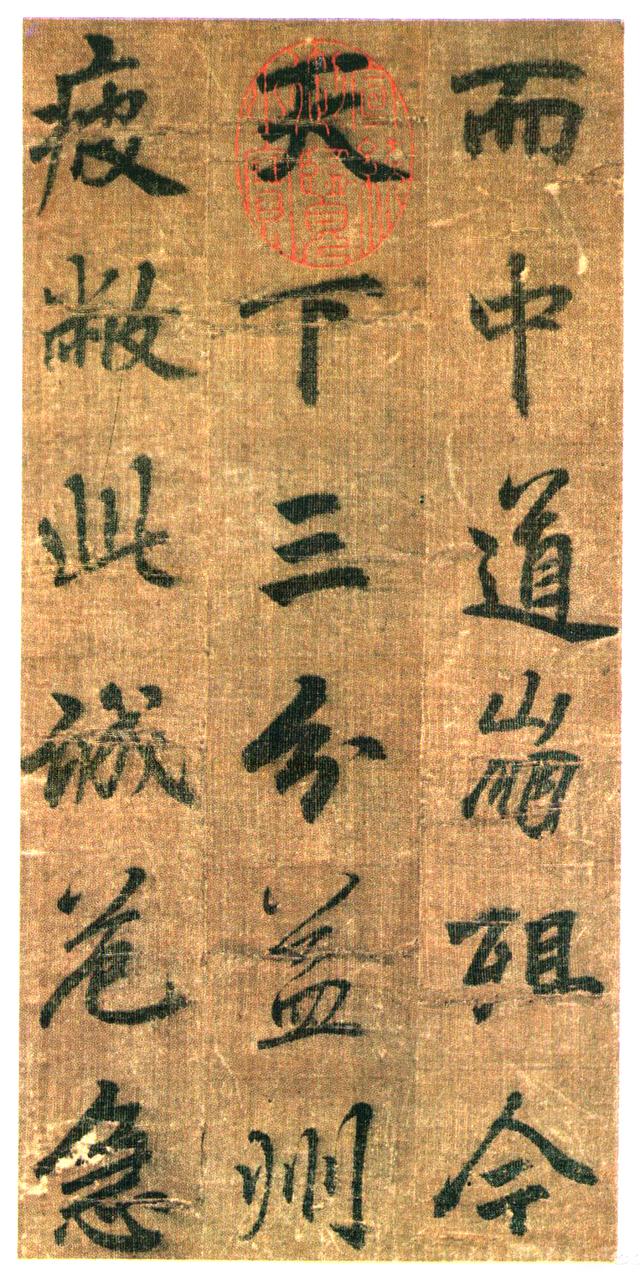 而中道崩殂今
天下三分益州
疲敝此诚危急